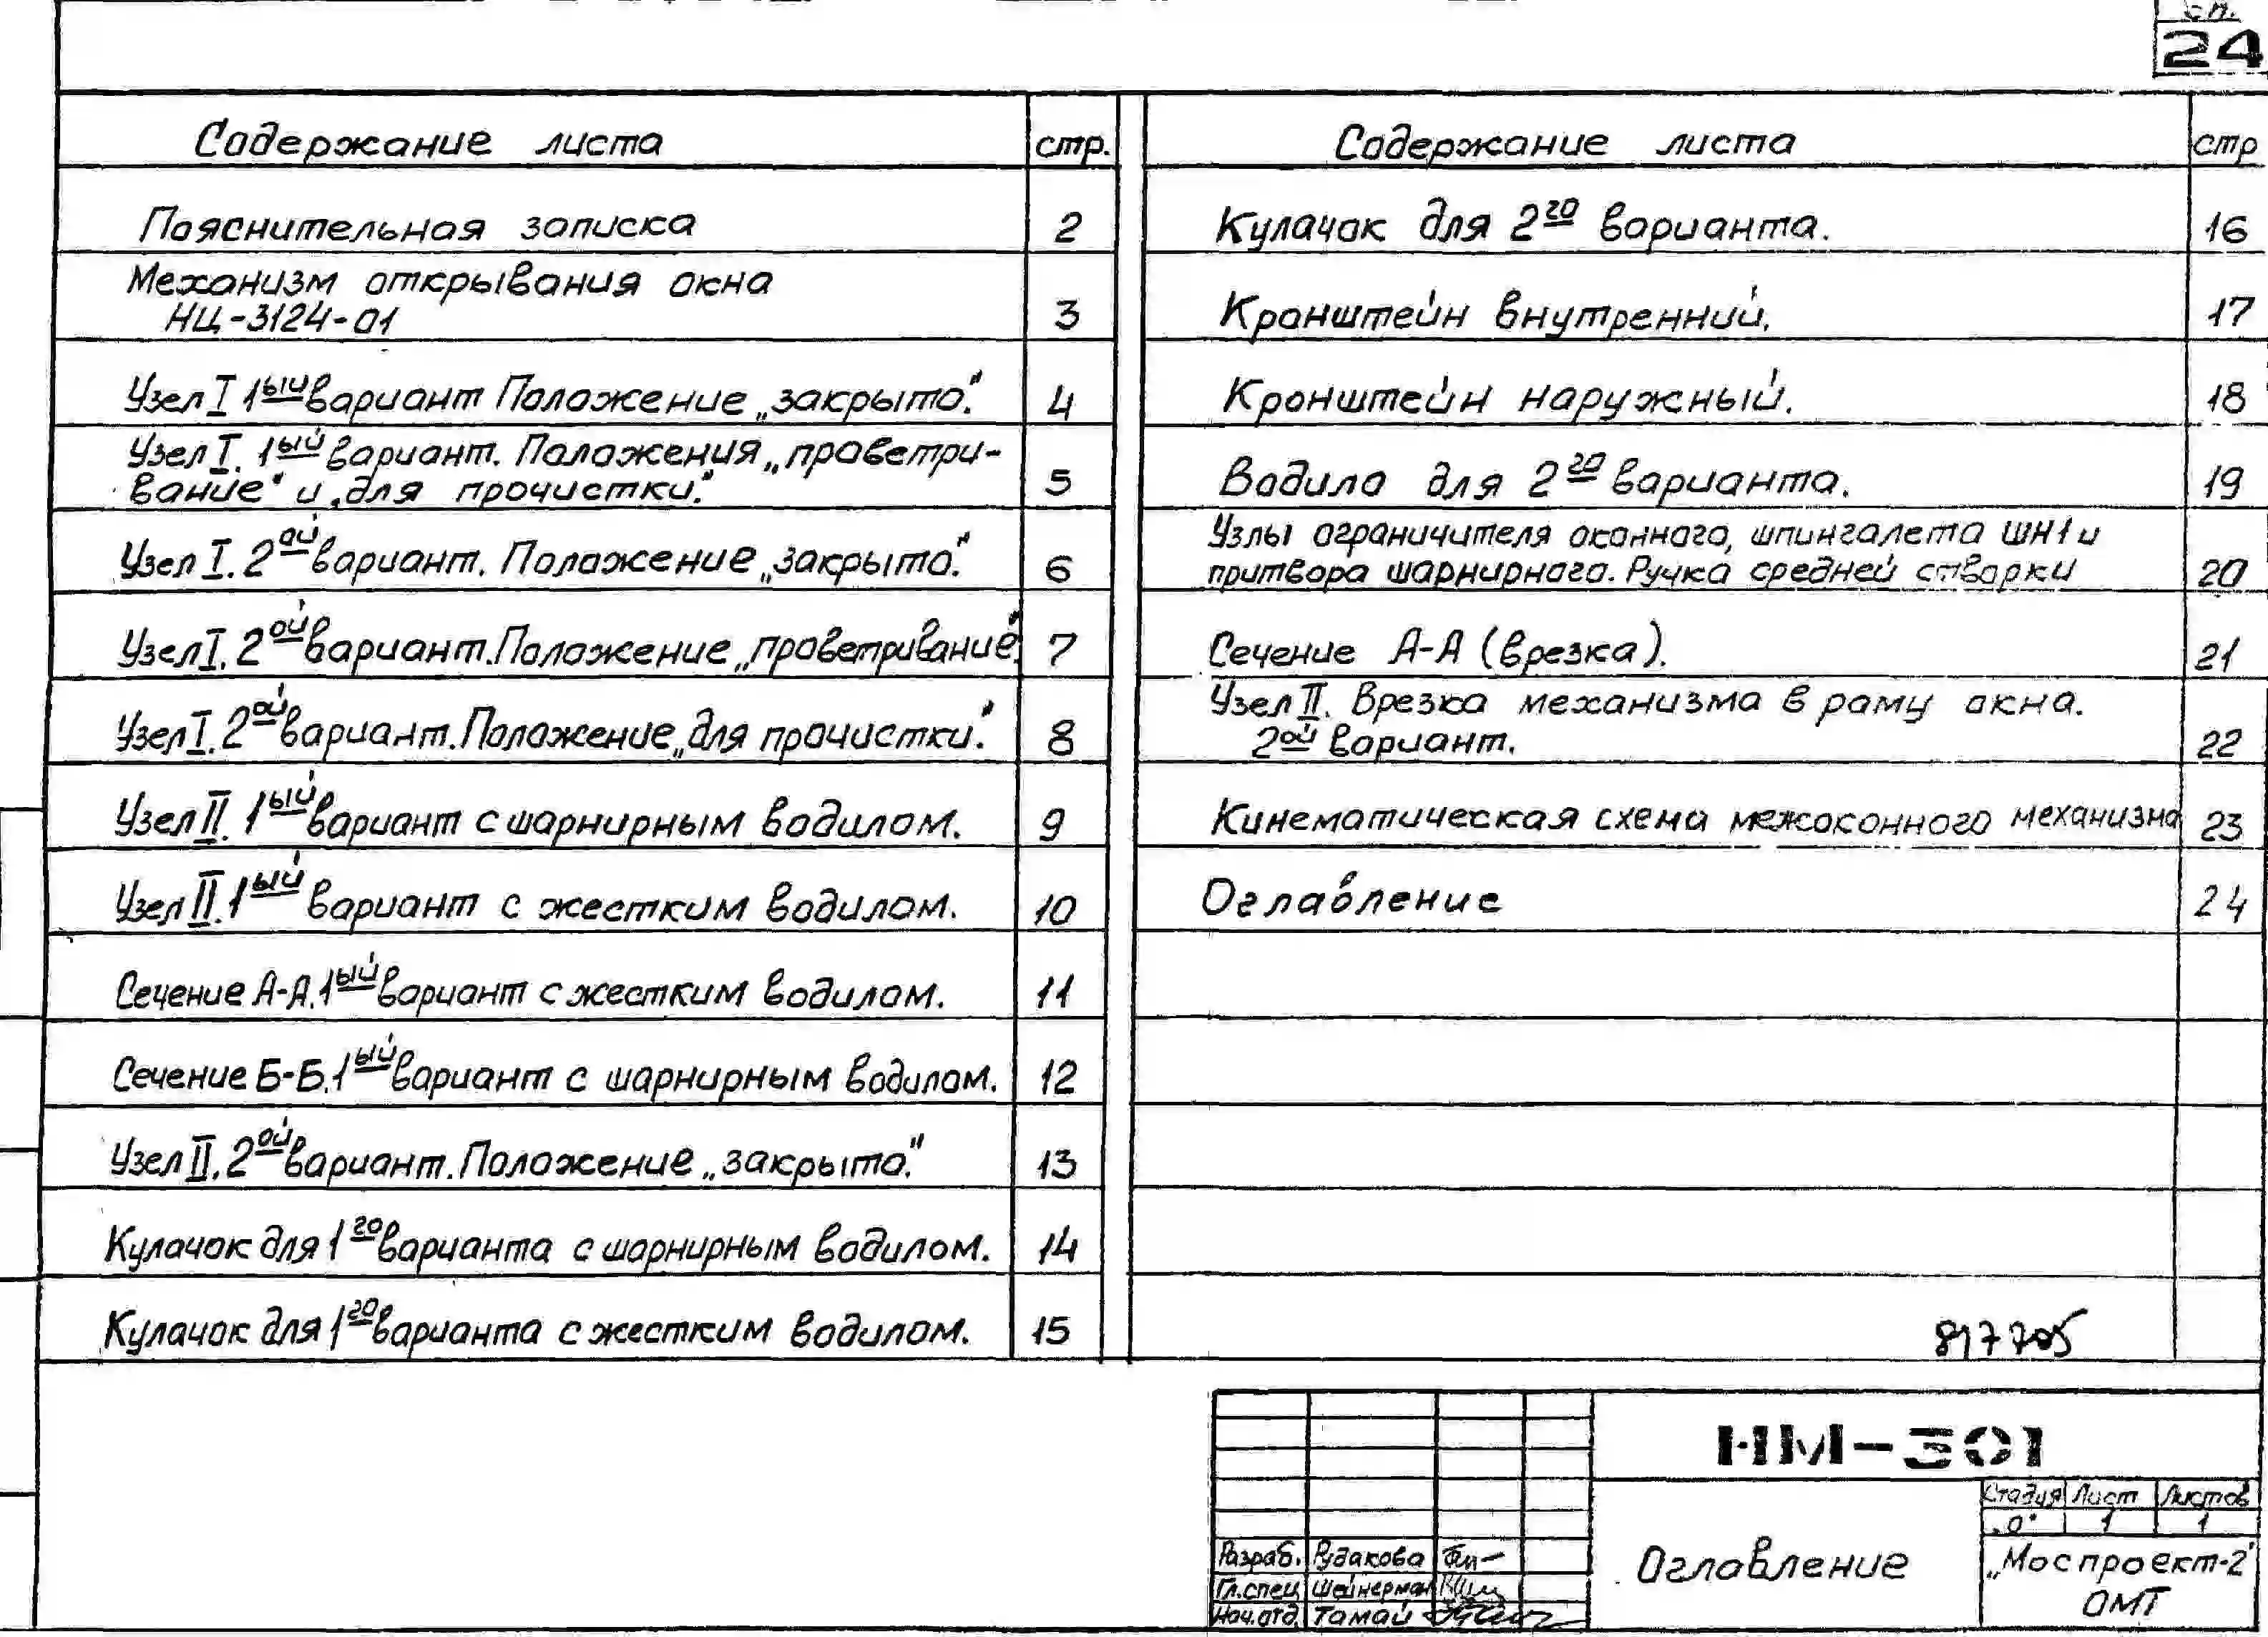 24
Содержание листа стр.
Пояснительная записка 2
Механизм открывания окна
НЦ-3124-01 3
Узел I 1ый вариант Положение „закрыто." 4
Узел I. 1ый вариант. Положения „проветри-
вание" и „для прочистки." 5
Узел I. 2ой вариант. Положение „закрыто." 6
Узел I. 2ой вариант. Положение „проветривание". 7
Узел I. 2ой вариант. Положение „для прочистки." 8
Узел II. 1ый вариант с шарнирным водилом. 9
Узел II. 1ый вариант с жестким водилом. 10
Сечение А-А. 1ый вариант с жестким водилом. 11
Сечение Б-Б. 1ый вариант с шарнирным водилом. 12
Узел II. 2ой вариант. Положение „закрыто." 13
Кулачок для 1го варианта с шарнирным водилом. 14
Кулачок для 1го варианта с жестким водилом. 15
Содержание листа стр
Кулачок для 2го варианта. 16
Кронштейн внутренний. 17
Кронштейн наружный. 18
Водило для 2го варианта. 19
Узлы ограничителя оконного, шпингалета ШН1 и
притвора шарнирного. Ручка средней створки 20
Сечение А-А (врезка). 21
Узел II. Врезка механизма в раму окна.
2ой вариант. 22
Кинематическая схема межоконного механизма 23
Оглавление 24
817705
НМ-301
Стадия Лист Листов
„О" 1 1
Разраб. Рудакова
Гл.спец Шейнерман
Нач.отд. Тамай
Оглавление
„Моспроект-2"
ОМТ